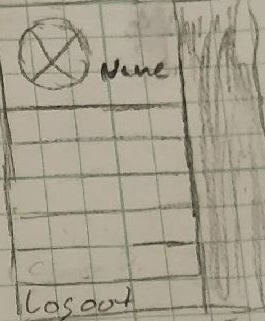 Name
Logout